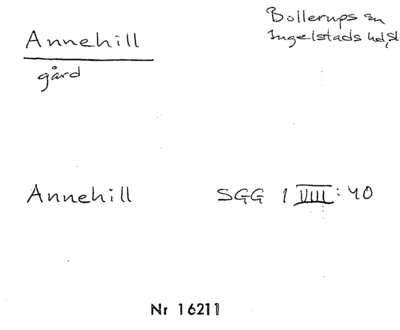 Annehill
gård
Bollerups sn
Ingelstads hd, Sk
Annehill SGG 1 VIII:40
Nr 16211